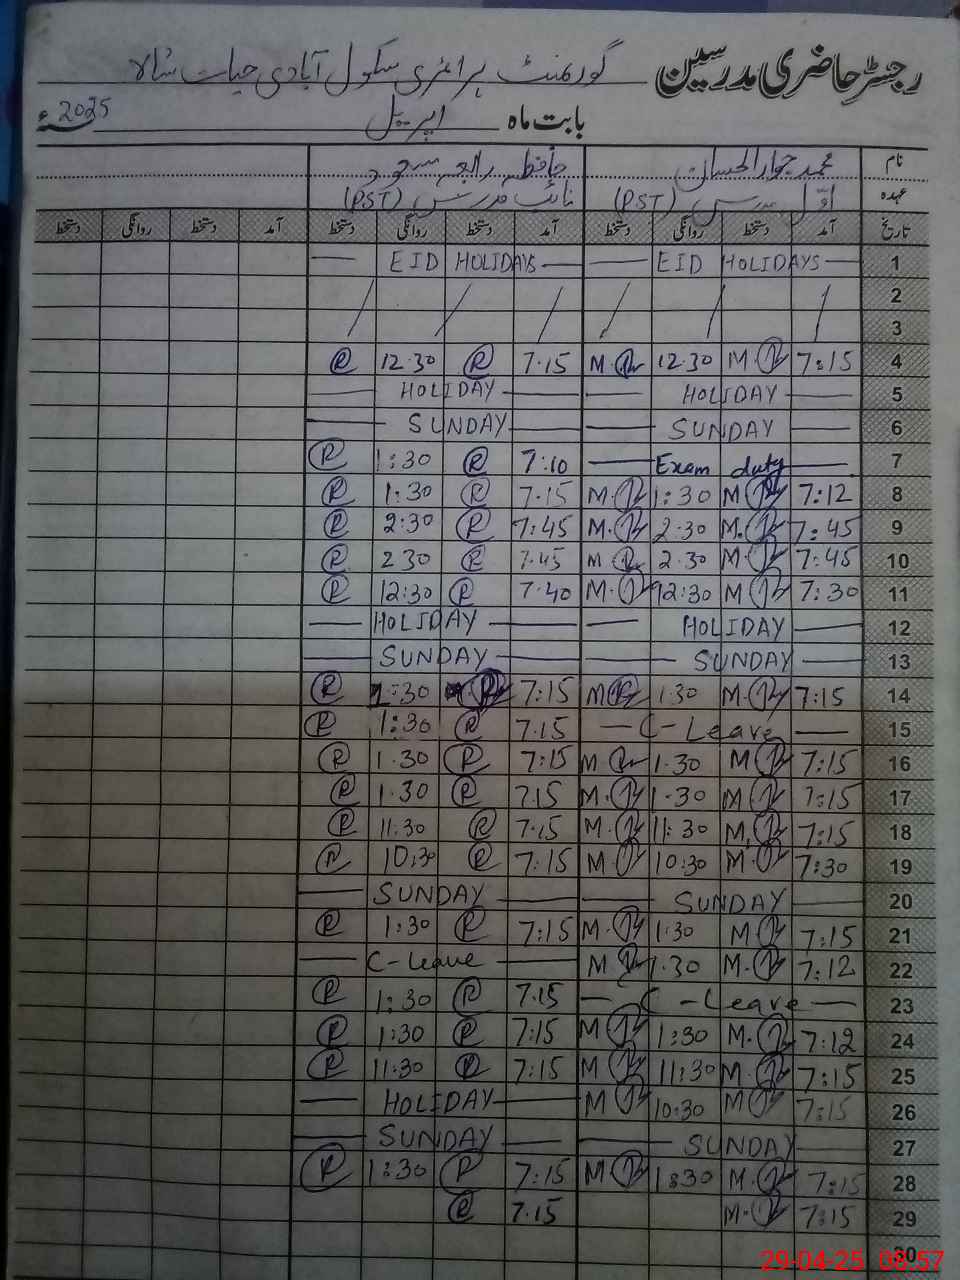 رجسٹر حاضری مدرسین گورنمنٹ پرائمری سکول آبادی حیات
بابت ماہ اپریل 2025ء
نام محمد حافظ
عہدہ اول مدرس (PST) نائب مدرس (PST)
تاریخ آمد دستخط روانگی دستخط آمد دستخط روانگی دستخط آمد دستخط روانگی دستخط
1 EID HOLIDAYS EID HOLIDAYS
2
3
4 7:15 M 12.30 M 7.15 R 12.30 R
5 HOLIDAY HOLIDAY
6 SUNDAY SUNDAY
7 Exam duty 7:10 R 1:30 R
8 7:12 M 1:30 M 7.15 R 1:30 R
9 7:45 M. 2:30 M. 7:45 R 2:30 R
10 7:45 M 2.30 M 7.45 R 2 30 R
11 7:30 M 12:30 M 7.40 R 12:30 R
12 HOLIDAY HOLIDAY
13 SUNDAY SUNDAY
14 7:15 M. 1.30 M 7:15 R 1:30 R
15 C-Leave 7.15 R 1:30 R
16 7:15 M 1.30 M 7:15 R 1.30 R
17 7:15 M 1.30 M. 7.15 R 1.30 R
18 7:15 M. 11:30 M. 7.15 R 11:30 R
19 7:30 M. 10:30 M. 7:15 R 10:30 R
20 SUNDAY SUNDAY
21 7:15 M 1:30 M. 7:15 R 1:30 R
22 7:12 M. 1.30 M C-Leave
23 C-Leave 7.15 R 1:30 R
24 7:12 M. 1:30 M 7:15 R 1:30 R
25 7:15 M. 11:30 M 7:15 R 11:30 R
26 7:15 M 10:30 M HOLIDAY
27 SUNDAY SUNDAY
28 7:15 M. 1:30 M. 7:15 R 1:30 R
29 7:15 M. 7.15 R
30
29-04-25 08:57